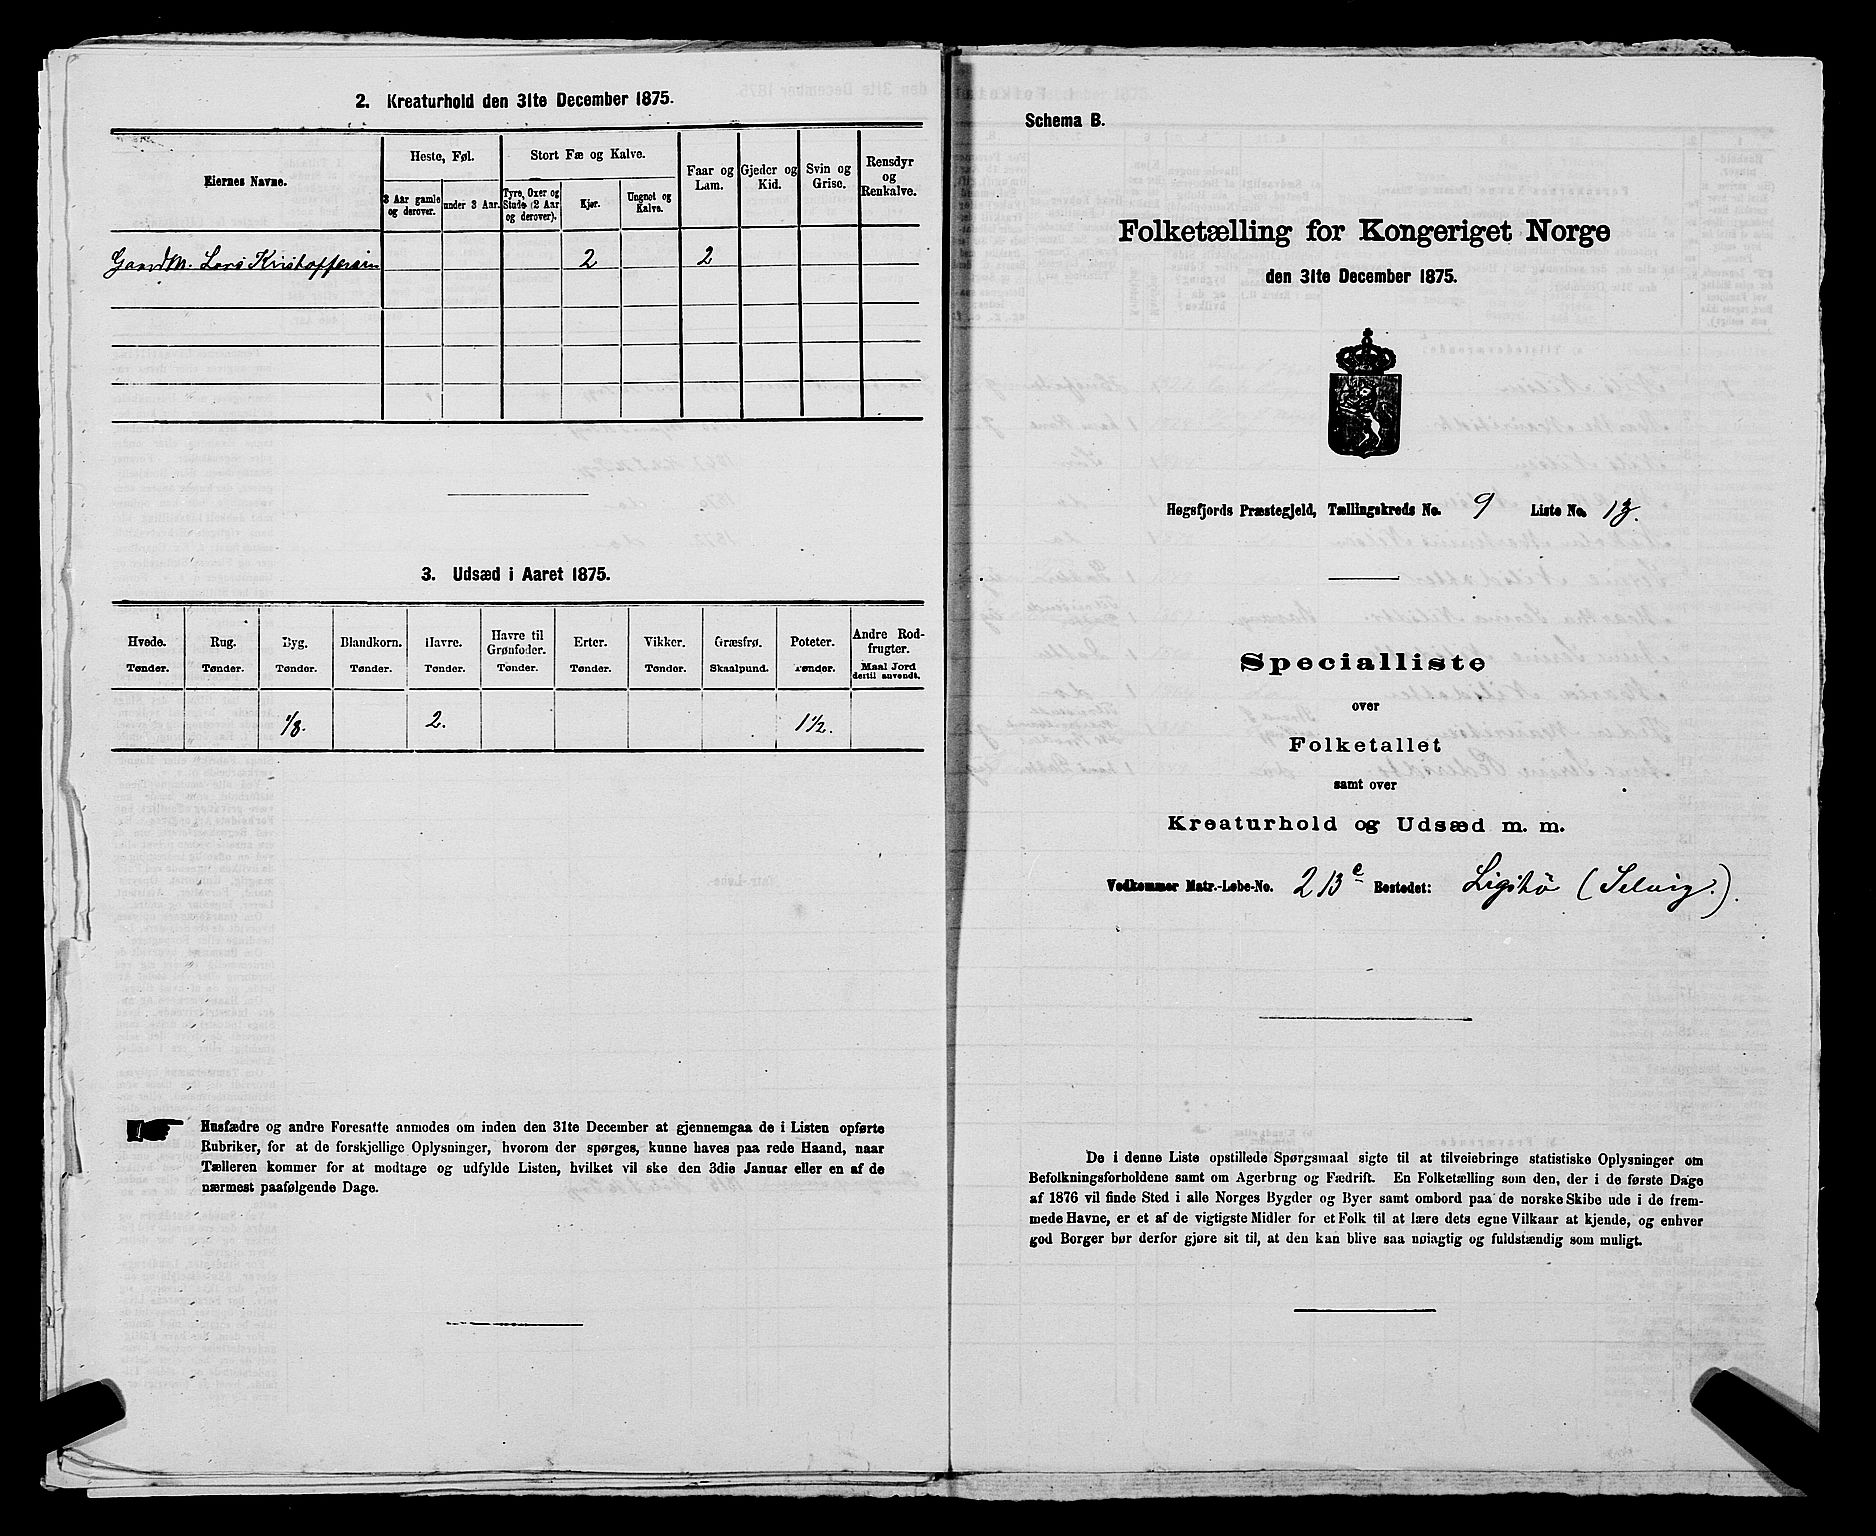 2. Kreaturhold den 31te December 1875.
Eiernes Navne.
Heste, Føl.
Stort Fæ og Kalve.
Faar og Lam.
Gjeder og Kid.
Svin og Grise.
Rensdyr og Renkalve.
3 Aar gamle og derover.
under 3 Aar.
Tyre, Oxer og Stude (2 Aar og derover).
Kjør.
Ungnøt og Kalve.
Gaardm. Lars Kristoffersen 2 2
3. Udsæd i Aaret 1875.
Hvede. Rug. Byg. Blandkorn. Havre. Havre til Grønfoder. Erter. Vikker. Græsfrø. Poteter. Andre Rodfrugter.
Tønder. Tønder. Tønder. Tønder. Tønder. Tønder. Tønder. Tønder. Skaalpund. Tønder. Maal Jord dertil anvendt.
1/8. 2. 1 1/2.
Husfædre og andre Foresatte anmodes om inden den 31te December at gjennemgaa de i Listen opførte
Rubriker, for at de forskjellige Oplysninger, hvorom der spørges, kunne haves paa rede Haand, naar
Tælleren kommer for at modtage og udfylde Listen, hvilket vil ske den 3die Januar eller en af de
nærmest paafølgende Dage.
Schema B.
Folketælling for Kongeriget Norge
den 31te December 1875.
Høgsfjords Præstegjeld, Tællingskreds No. 9 Liste No. 13.
Specialliste
over
Folketallet
samt over
Kreaturhold og Udsæd m. m.
Vedkommer Matr.-Løbe-No. 213e Bostedet: Ligthö (Selvig.).
De i denne Liste opstillede Spørgsmaal sigte til at tilveiebringe statistiske Oplysninger om
Befolkningsforholdene samt om Agerbrug og Fædrift. En Folketælling som den, der i de første Dage
af 1876 vil finde Sted i alle Norges Bygder og Byer samt ombord paa de norske Skibe ude i de frem-
mede Havne, er et af de vigtigste Midler for et Folk til at lære dets egne Vilkaar at kjende, og enhver
god Borger bør derfor gjøre sit til, at den kan blive saa nøiagtig og fuldstændig som muligt.